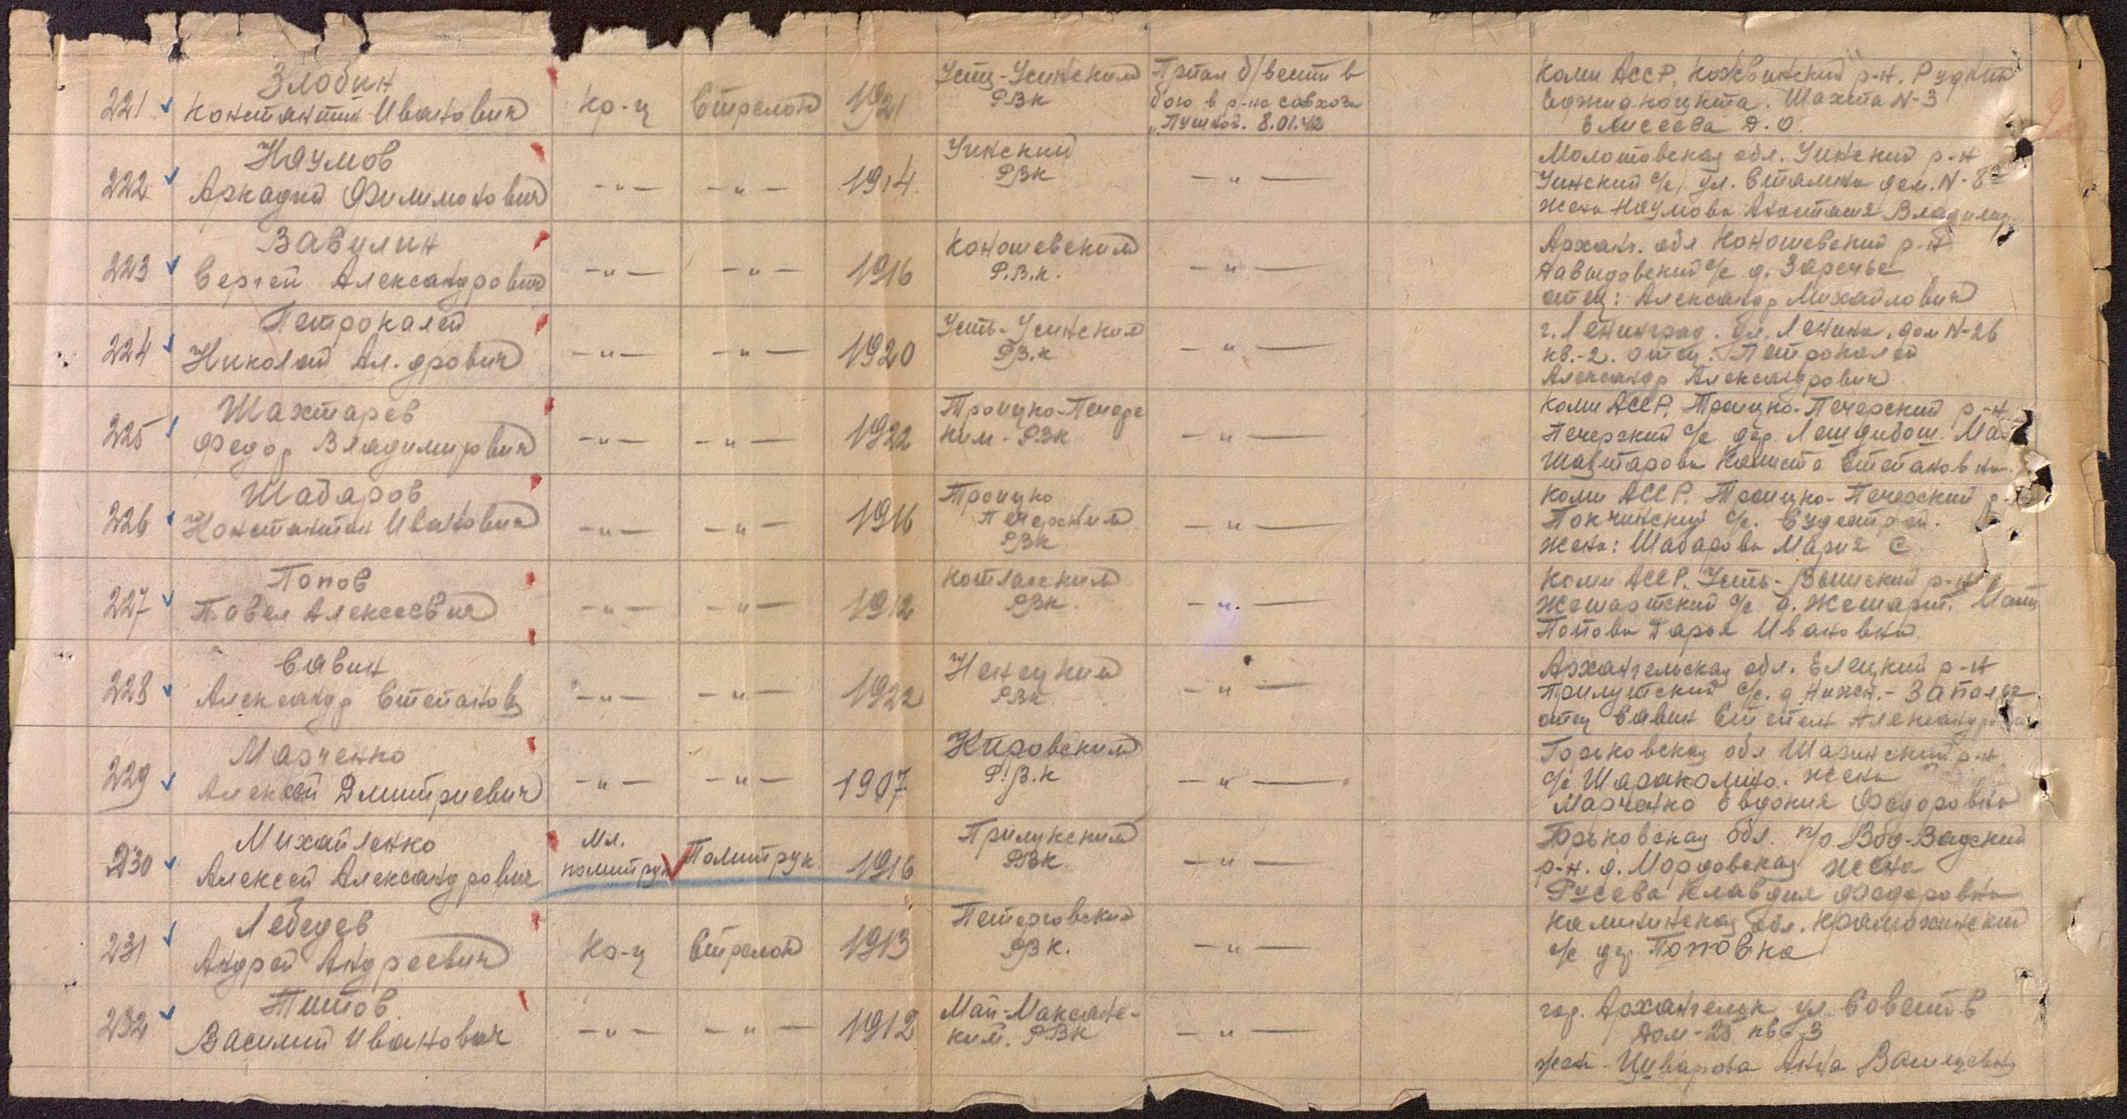 221 Злобин
Константин Иванович
Кр-ц
Стрелок
1921
Усть-Усинским
РВК
Пропал б/вести в
бою в р-не совхоза
"Пушкой". 8.01.42
Коми АССР, Кожвинский р-н. Рудник
Еджид-Кодкта. Шахта N-3
Елисеева Д.О.
222 Наумов
Аркадий Филимонович
—"—
—"—
1914
Уинский
РВК
—"—
Молотовская обл. Уинский р-н
Уинский с/с, ул. Сталина дом. N-8
Жена Наумова Анастасия Владимир.
223 Вавулин
Сергей Александрович
—"—
—"—
1916
Коношевским
Р.В.К.
—"—
Арханг. обл Коношевский р-н
Давыдовский с/с д. Заречье
отец: Александр Михайлович
224 Петрокалей
Николай Ал.дрович
—"—
—"—
1920
Усть-Усинским
РВ.К
—"—
г. Ленинград. ул. Ленина, дом N-26
кв.-2. отец. Петрокалей
Александр Александрович
225 Шахтарев
Федор Владимирович
—"—
—"—
1922
Троицко-Печерс
ким - РВК
—"—
Коми АССР, Троицко-Печерский р-н
Печерский с/с дер. Лемдибож. Ма
Степановна
226 Шабаров
Константин Иванович
—"—
—"—
1916
Троицко
Печерским
РВК
—"—
Коми АССР. Троицко-Печерский р-
Покчинский с/с.
Жена: Шабарова Мария С
227 Попов
Павел Алексеевич
—"—
—"—
1912
Котласским
РВК.
—"—
Коми АССР. Усть-Вымский р-н
Жешартский с/с д. Жешарт. Мать
Попова Дарья Ивановна
228 Савин
Александр Степанов
—"—
—"—
1922
Ненецким
РВК
—"—
Архангельская обл. Елецкий р-н
Прилукский с/с. д Нижн.-
отец Савин Степан Александрович
229 Марченко
Алексей Дмитриевич
—"—
—"—
1907
Кировским
Р.В.К
—"—
Горьковская обл Шарьинский р-н
с/с жена
Марченко Евдокия Федоровна
230 Михайленко
Алексей Александрович
Мл.
политрук
Политрук
1916
Прилукским
РВК
—"—
Горьковская обл. п/о Вод-Вадский
р-н. д. Мордовская жена
Гусева Клавдия Федоровна
231 Лебедев
Андрей Андреевич
Кр-ц
Стрелок
1913
Петерговский
РВК.
—"—
Калининская обл.
с/с дер Поповка
232 Титов
Василий Иванович
—"—
—"—
1912
Май-Максанс-
ким. РВК
—"—
гор. Архангельск ул. Советов
дом-25 кв 3
жен - Цыварова Анна Васильевна